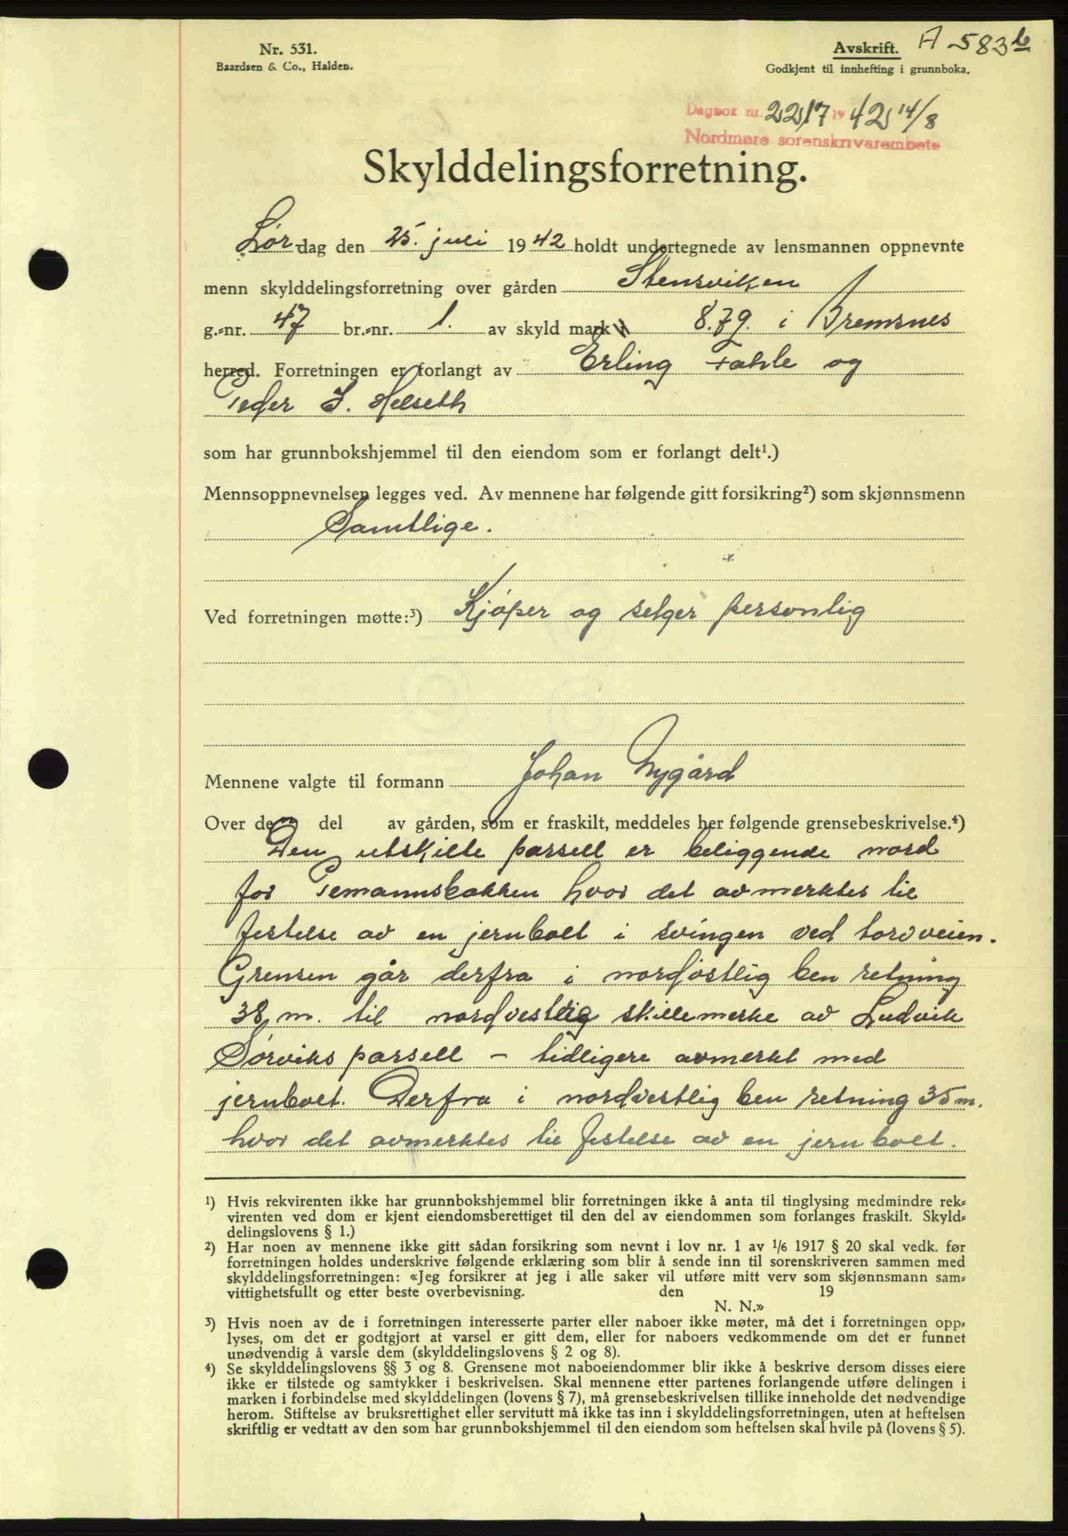 Nr. 531.
Baardsen & Co., Halden.
Avskrift. A 583 b
Godkjent til innhefting i grunnboka.
Dagbok nr. 2217 19 42 14/8
Nordmøre sorenskriverembete
Skylddelingsforretning.
Lør dag den 25. juli 19 42 holdt undertegnede av lensmannen oppnevnte
menn skylddelingsforretning over gården Stensviken
g.-nr. 47 br.-nr. 1. av skyld mark 8.79. i Bremsnes
herred. Forretningen er forlangt av Erling Fahle og
Peder I. Helseth
som har grunnbokshjemmel til den eiendom som er forlangt delt¹.)
Mennsoppnevnelsen legges ved. Av mennene har følgende gitt forsikring²) som skjønnsmenn
Samtlige.
Ved forretningen møtte:³) Kjøper og selger personlig
Mennene valgte til formann Johan Nygård
Over den del av gården, som er fraskilt, meddeles her følgende grensebeskrivelse.⁴)
Den utskilte parsell er beliggende nord
for Temannsbakken hvor det avmerktes til
festelse av en jernbolt i svingen ved torvveien.
Grensen går derfra i nordøstlig ben retning
38 m. til nordvestlig skillemerke av Ludvik
Sørviks parsell - tidligere avmerkt med
jernbolt. Derfra i nordvestlig ben retning 35 m.
hvor det avmerktes til festelse av en jernbolt.
¹) Hvis rekvirenten ikke har grunnbokshjemmel blir forretningen ikke å anta til tinglysing medmindre rek-
virenten ved dom er kjent eiendomsberettiget til den del av eiendommen som forlanges fraskilt. Skyld-
delingslovens § 1.)
²) Har noen av mennene ikke gitt sådan forsikring som nevnt i lov nr. 1 av 1/6 1917 § 20 skal vedk. før
forretningen holdes underskrive følgende erklæring som blir å sende inn til sorenskriveren sammen med
skylddelingsforretningen: «Jeg forsikrer at jeg i alle saker vil utføre mitt verv som skjønnsmann sam-
vittighetsfullt og etter beste overbevisning. den 19
N. N.»
³) Hvis noen av de i forretningen interesserte parter eller naboer ikke møter, må det i forretningen opp-
lyses, om det er godtgjort at varsel er gitt dem, eller for naboers vedkommende om det er funnet
unødvendig å varsle dem (skylddelingslovens § 2 og 8).
⁴) Se skylddelingslovens §§ 3 og 8. Grensene mot naboeiendommer blir ikke å beskrive dersom disses eiere
ikke er tilstede og samtykker i beskrivelsen. Skal mennene etter partenes forlangende utføre delingen i
marken i forbindelse med skylddelingen (lovens § 7), må grensebeskrivelsen tillike inneholde det nødvendige
herom. Stiftelse av bruksrettighet eller servitutt må ikke tas inn i skylddelingsforretningen, uten at heftelsen
skriftlig er vedtatt av den som har grunnbokshjemmel til den eiendom som heftelsen skal hvile på (lovens § 5).